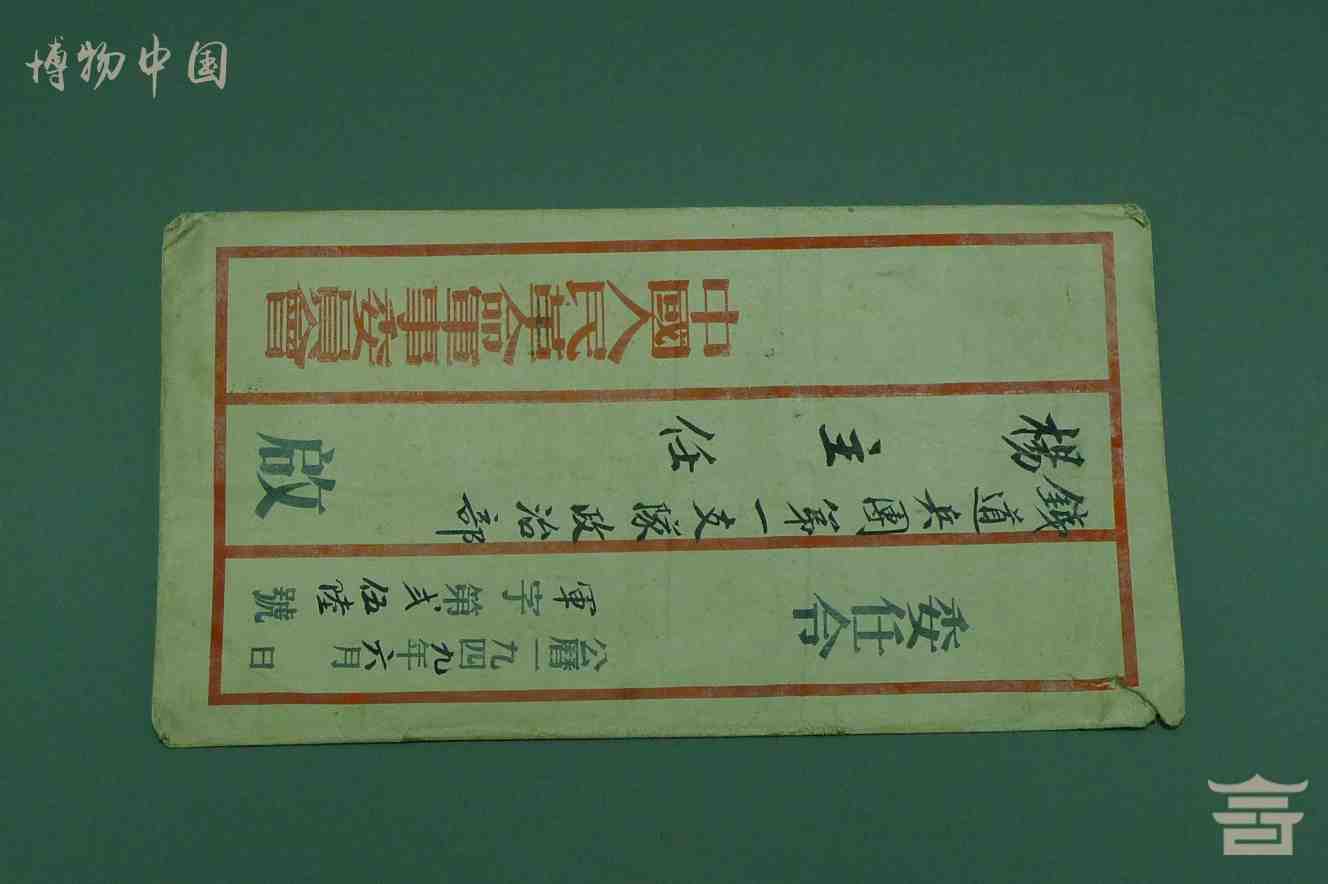 博物中国
委任令
公曆一九四九年六月 日
軍字第弍伍陸號
鐵道兵團第一支隊政治部
楊主任 啟
中國人民革命軍事委員會